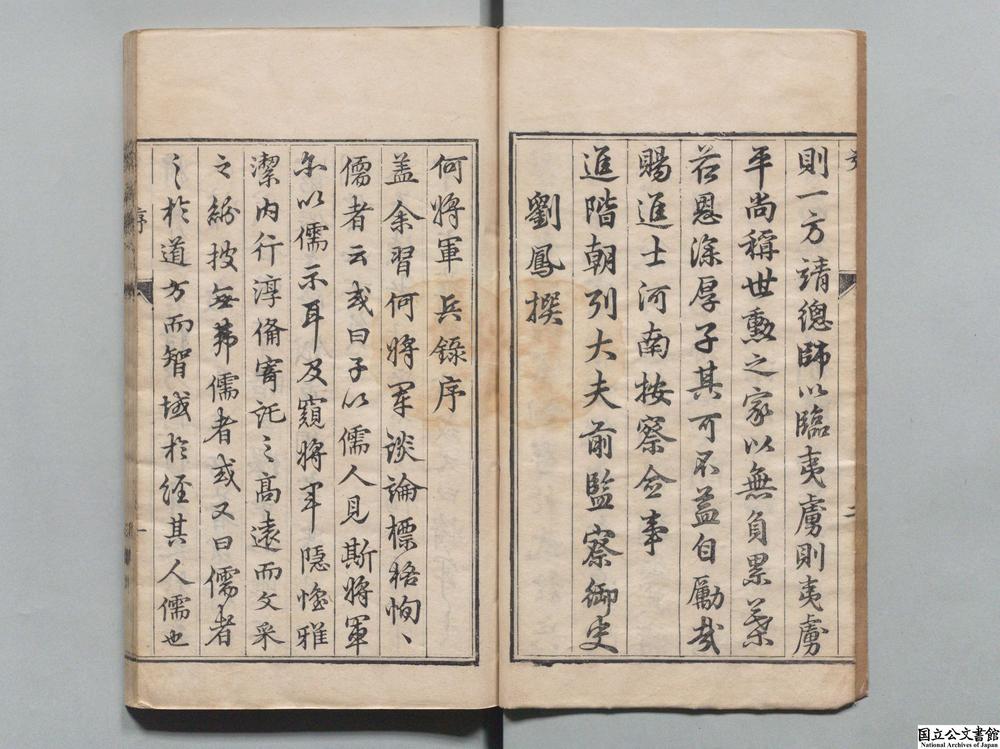 則一方靖總師以臨夷虜則夷虜
平尚稱世勲之家以無負累葉
若恩深厚子其可不益自勵哉
賜進士河南按察僉事
進階朝列大夫前監察御史
劉鳳撰
二
何將軍兵錄序
盖余習何將軍談論標格恂〻
儒者云或曰子以儒人見斯將軍
尓以儒示耳及窺將軍隱惟雅
潔内行淳俻寄託之高遠而文采
之紛披無葬儒者或又曰儒者
之於道方而智域於经其人儒也
序
一
国立公文書館
National Archives of Japan